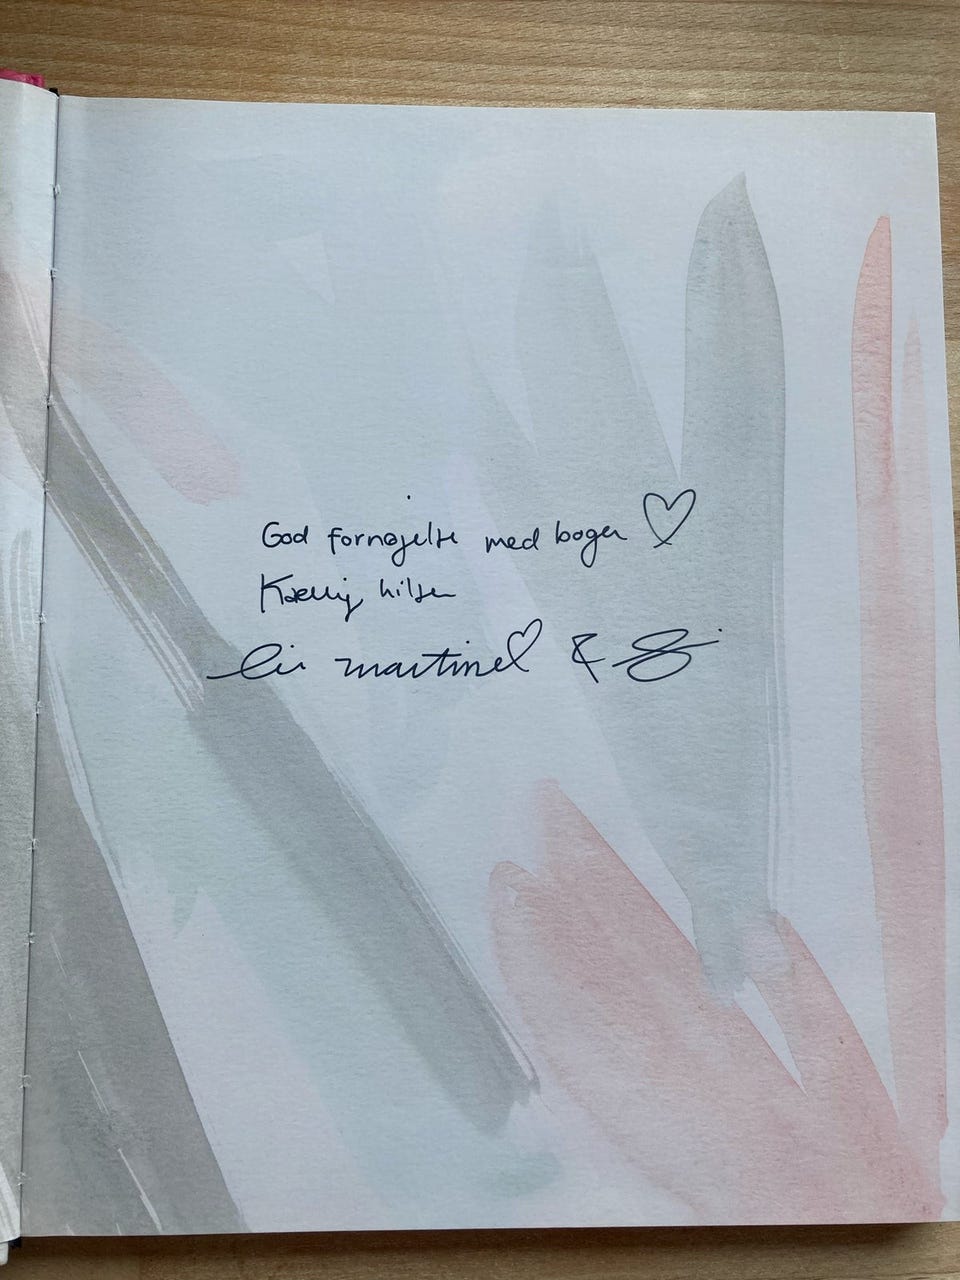 God fornøjelse med bogen ♡
Kærlig hilsen
Liv martine ♡ &